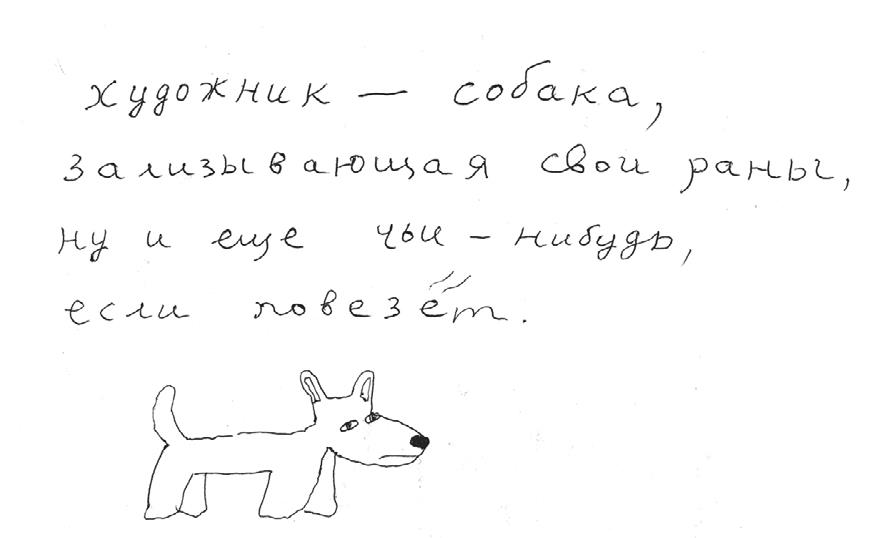 художник — собака,
зализывающая свои раны,
ну и еще чьи-нибудь,
если повезёт.